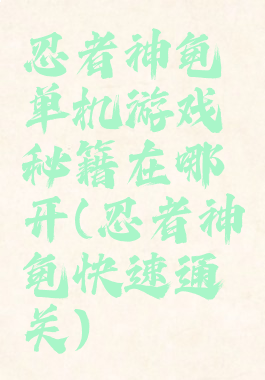 忍者神龟
单机游戏
秘籍在哪
开(忍者神
龟快速通
关)